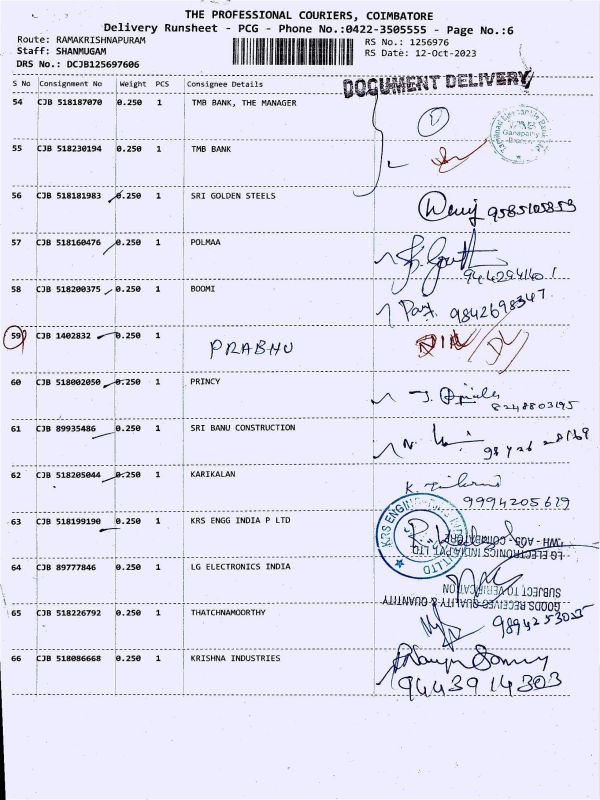 THE PROFESSIONAL COURIERS, COIMBATORE
Delivery Runsheet - PCG - Phone No.:0422-3505555 - Page No.:6
Route: RAMAKRISHNAPURAM RS No.: 1256976
Staff: SHANMUGAM RS Date: 12-Oct-2023
DRS No.: DCJB125697606
DOCUMENT DELIVERY
S No Consignment No Weight PCS Consignee Details
54 CJB 518187070 0.250 1 TMB BANK, THE MANAGER
55 CJB 518230194 0.250 1 TMB BANK
56 CJB 518181983 0.250 1 SRI GOLDEN STEELS 9585105859
57 CJB 518160476 0.250 1 POLMAA
58 CJB 518200375 0.250 1 BOOMI 9842698347
59 CJB 1402832 0.250 1 PRABHU
60 CJB 518002050 0.250 1 PRINCY 8248803195
61 CJB 89935486 0.250 1 SRI BANU CONSTRUCTION
62 CJB 518205044 0.250 1 KARIKALAN 9994205619
63 CJB 518199190 0.250 1 KRS ENGG INDIA P LTD
64 CJB 89777846 0.250 1 LG ELECTRONICS INDIA
LG ELECTRONICS INDIA PVT. LTD
SUBJECT TO VERIFICATION
GOODS RECEIVED QUALITY & QUANTITY
65 CJB 518226792 0.250 1 THATCHNAMOORTHY 9894253025
66 CJB 518086668 0.250 1 KRISHNA INDUSTRIES
9443914303